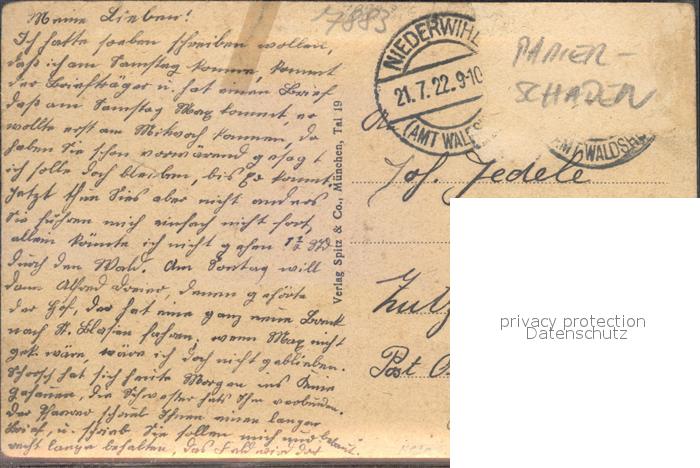 Meine Lieben!
Ich hatte soeben schreiben wollen,
daß ich am Samstag komme, kommt
der Briefträger u. hat einen Brief
daß am Samstag Max kommt, er
wollte erst am Mitwoch kommen, da
haben Sie schon vorwärend gesagt
ich solle doch bleiben, bis Er kommt.
Jetzt thun Sies aber nicht anders
Sie führen mich einfach nicht fort,
allein könnte ich nicht gehen 1½ Std
durch den Wald. Am Sontag will
dann Alfred, denen gehörte
der Hof, der hat eine ganz neue
nach St. Blasien fahren, wenn Max nicht
gek. wäre, wäre ich doch nicht geblieben.
hat sich heute Morgen ins
gehauen, die Schwester hats Ihm verbunden.
Der Pfarrer schrieb Ihnen einen langen
Brief, u. schrieb Sie sollen mich nur
recht lange behalten, das
Verlag Spitz & Co., München, Tal 19
7883
NIEDERWIH
21.7.22.9-10
(AMT WALDS
AMT WALDSH
PAPIER-
SCHADEN
Jos. Jedele
Post
privacy protection
Datenschutz